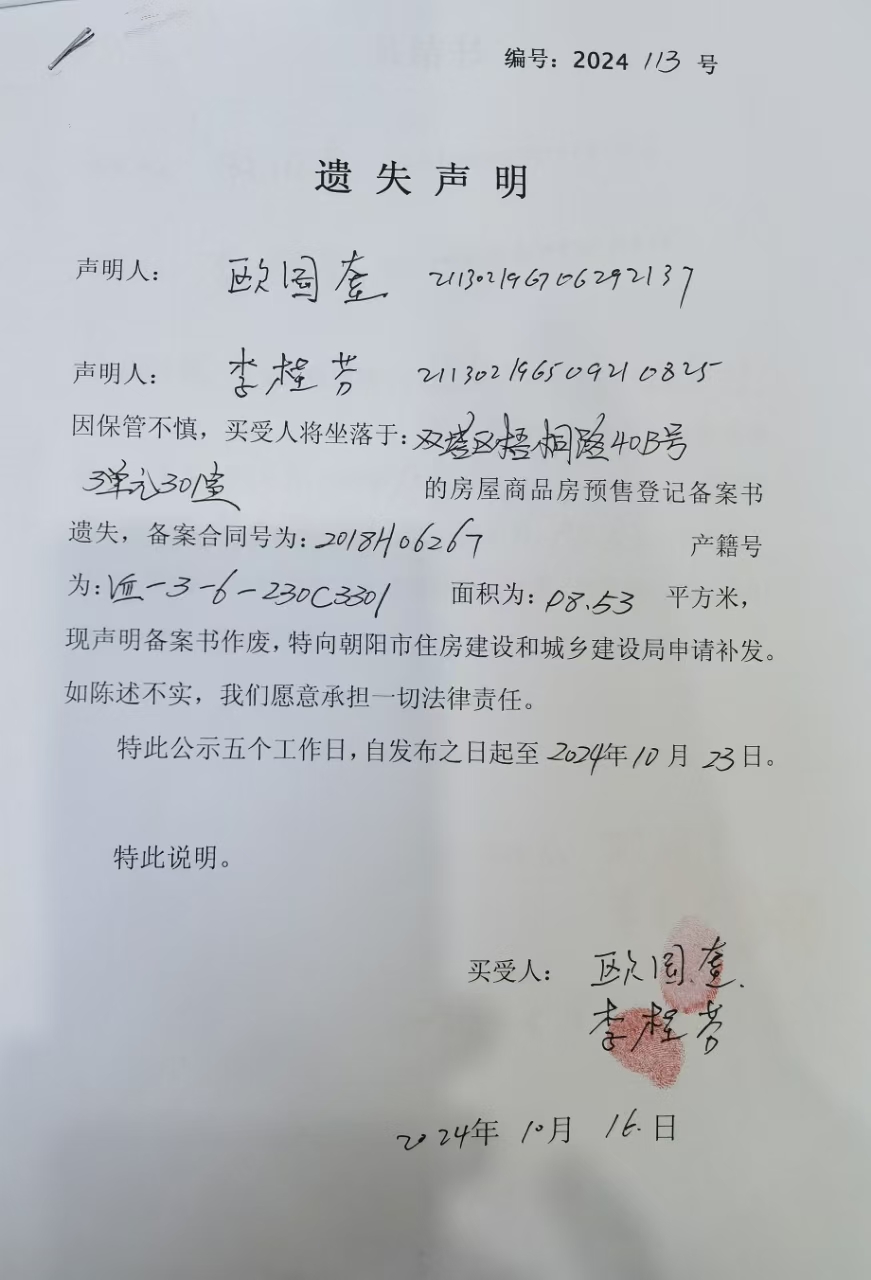 编号：2024 113 号
遗失声明
声明人： 欧国奎 211302196706292137
声明人： 李桂芬 211302196509210825
因保管不慎，买受人将坐落于：双塔区梧桐路40B号
3单元301室 的房屋商品房预售登记备案书
遗失，备案合同号为：2018H06267 产籍号
为： -3-6-230C3301 面积为： 平方米，
现声明备案书作废，特向朝阳市住房建设和城乡建设局申请补发。
如陈述不实，我们愿意承担一切法律责任。
特此公示五个工作日，自发布之日起至 2024年10月 23日。
特此说明。
买受人： 欧国奎.
李桂芬
2024年 10月 16.日